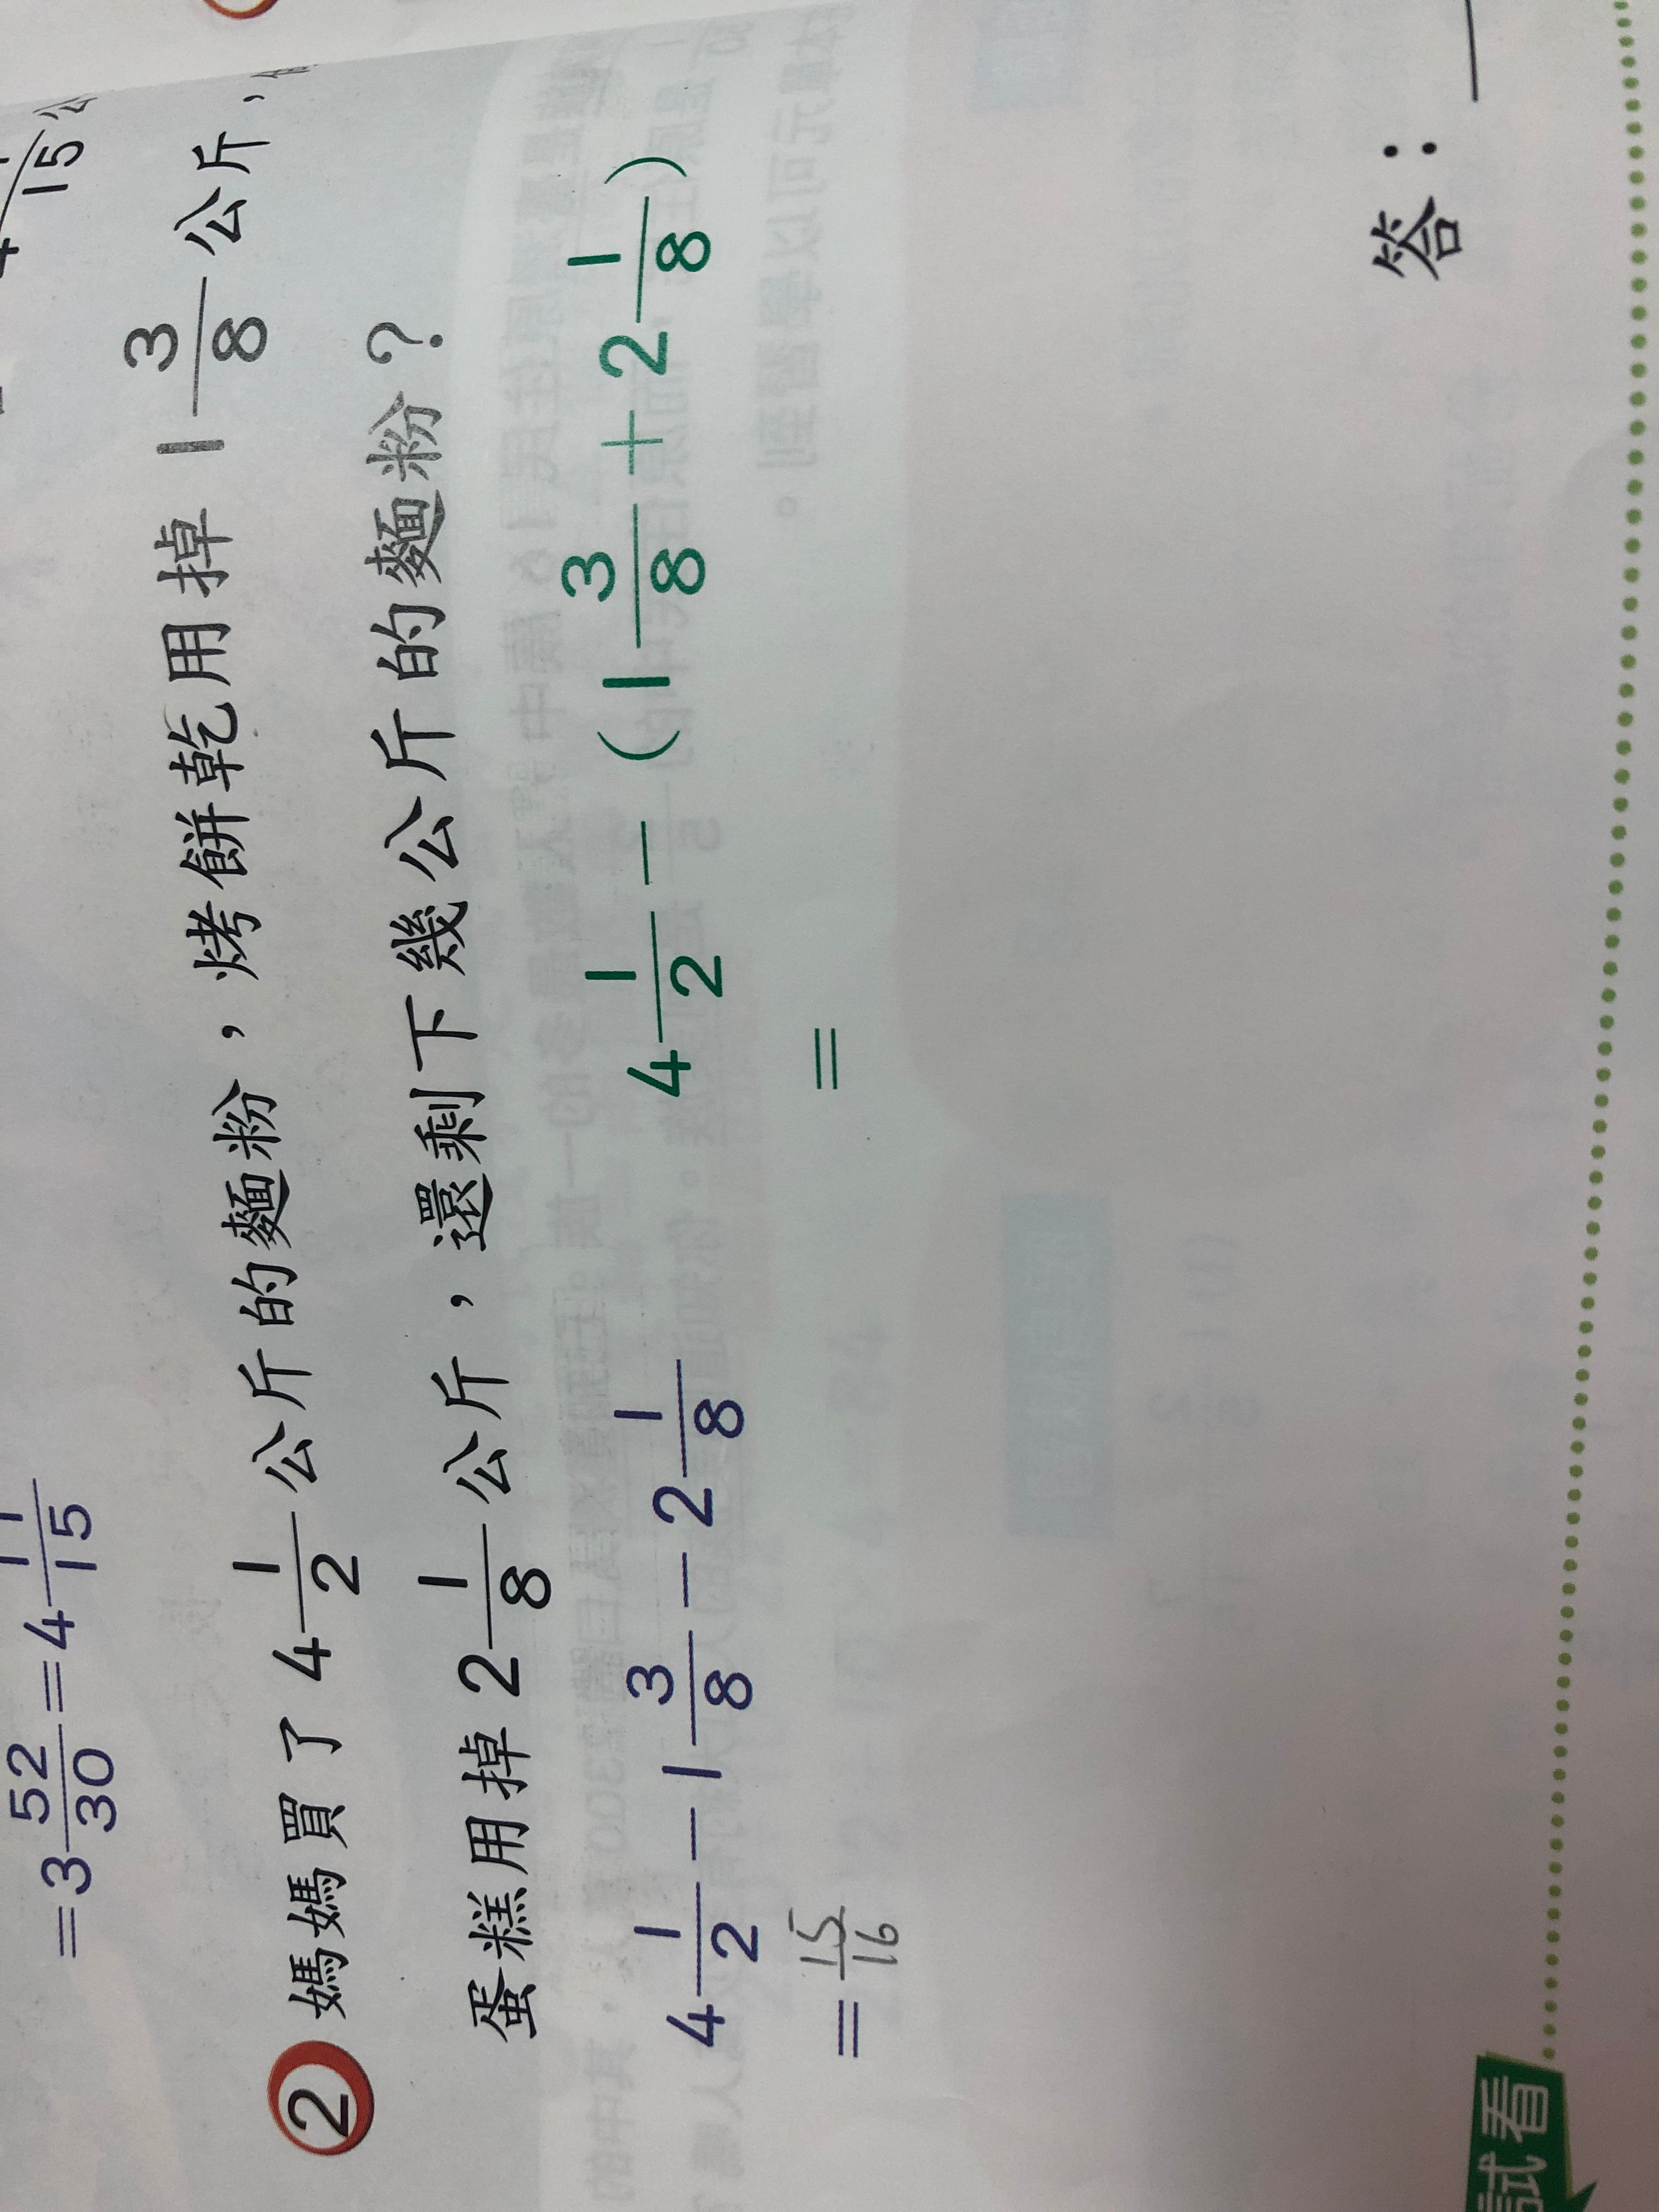 =3 52/30=4 1/15
15
2 媽媽買了 4 1/2 公斤的麵粉，烤餅乾用掉 1 3/8 公斤，
蛋糕用掉 2 1/8 公斤，還剩下幾公斤的麵粉？
4 1/2 − 1 3/8 − 2 1/8
= 15/16
4 1/2 − (1 3/8 + 2 1/8)
=
答：
試看